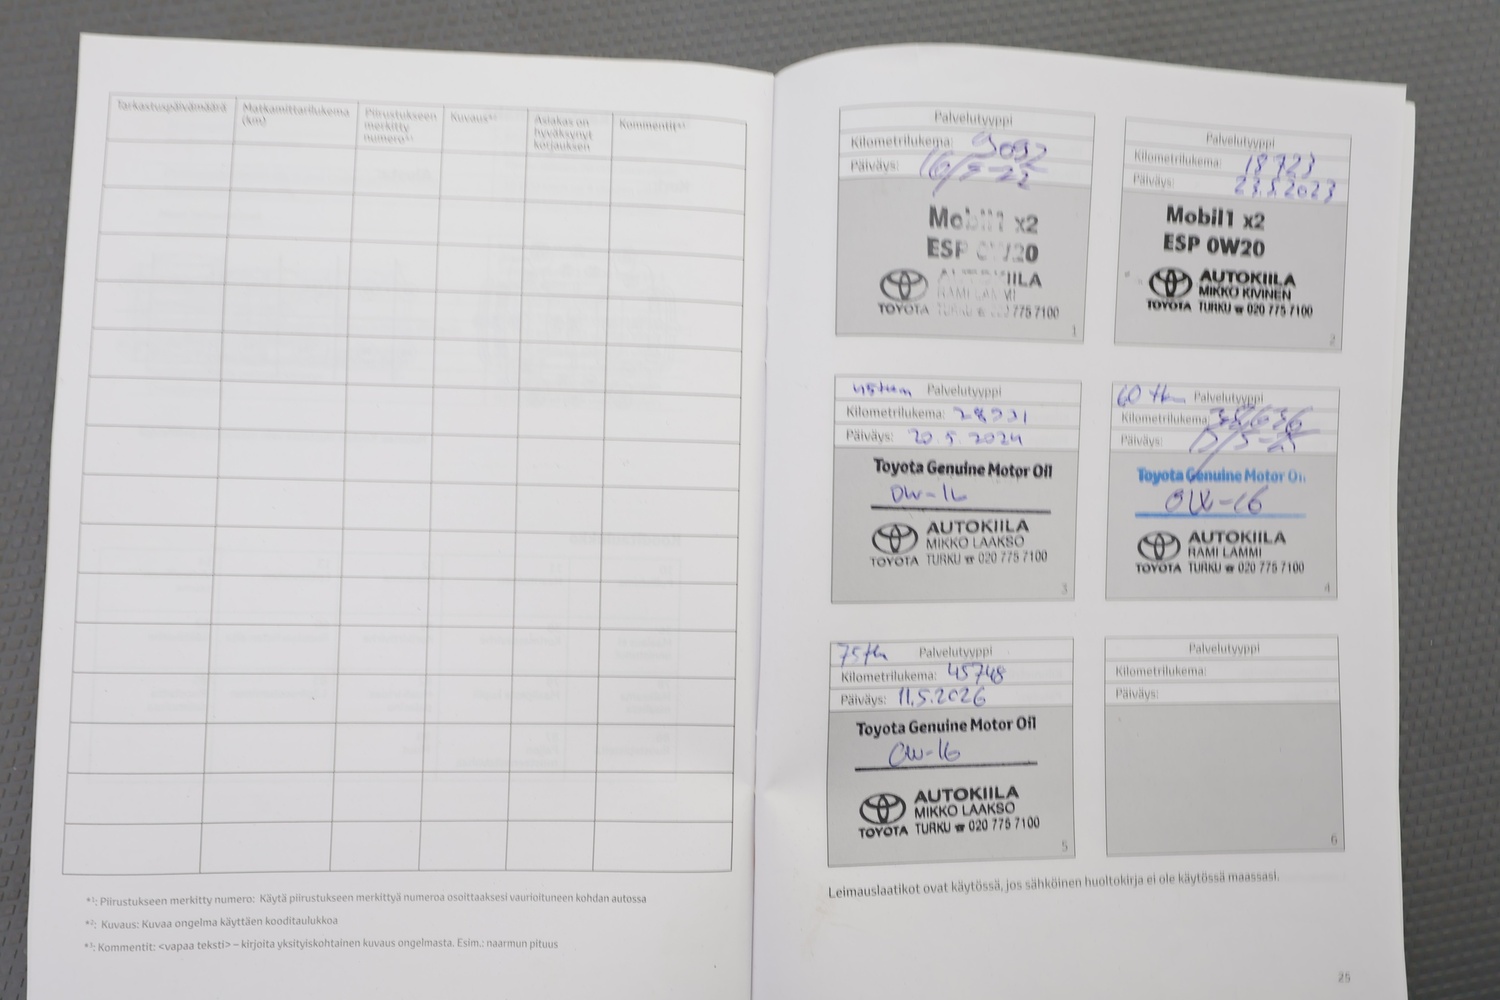 Tarkastuspäivämäärä
Matkamittarilukema
(km)
Piirustukseen
merkitty
numero*¹
Kuvaus*²
Asiakas on
hyväksynyt
korjauksen
Kommentit*³
*¹: Piirustukseen merkitty numero: Käytä piirustukseen merkittyä numeroa osoittaaksesi vaurioituneen kohdan autossa
*²: Kuvaus: Kuvaa ongelma käyttäen kooditaulukkoa
*³: Kommentit: <vapaa teksti> – kirjoita yksityiskohtainen kuvaus ongelmasta. Esim.: naarmun pituus
Palvelutyyppi
Kilometrilukema: 9092
Päiväys: 16/5-22
Mobil1 x2
ESP 0W20
AUTOKIILA
RAMI LAMMI
TOYOTA TURKU ☎ 020 775 7100
1
Palvelutyyppi
Kilometrilukema: 18723
Päiväys: 23.5.2023
Mobil1 x2
ESP 0W20
AUTOKIILA
MIKKO KIVINEN
TOYOTA TURKU ☎ 020 775 7100
2
Palvelutyyppi
Kilometrilukema: 28931
Päiväys: 20.5.2024
Toyota Genuine Motor Oil
0W-16
AUTOKIILA
MIKKO LAAKSO
TOYOTA TURKU ☎ 020 775 7100
3
Palvelutyyppi
Kilometrilukema: 38636
Päiväys:
Toyota Genuine Motor Oil
0W-16
AUTOKIILA
RAMI LAMMI
TOYOTA TURKU ☎ 020 775 7100
4
75th Palvelutyyppi
Kilometrilukema: 45748
Päiväys: 11.5.2026
Toyota Genuine Motor Oil
0W-16
AUTOKIILA
MIKKO LAAKSO
TOYOTA TURKU ☎ 020 775 7100
5
Palvelutyyppi
Kilometrilukema:
Päiväys:
6
Leimauslaatikot ovat käytössä, jos sähköinen huoltokirja ei ole käytössä maassasi.
25